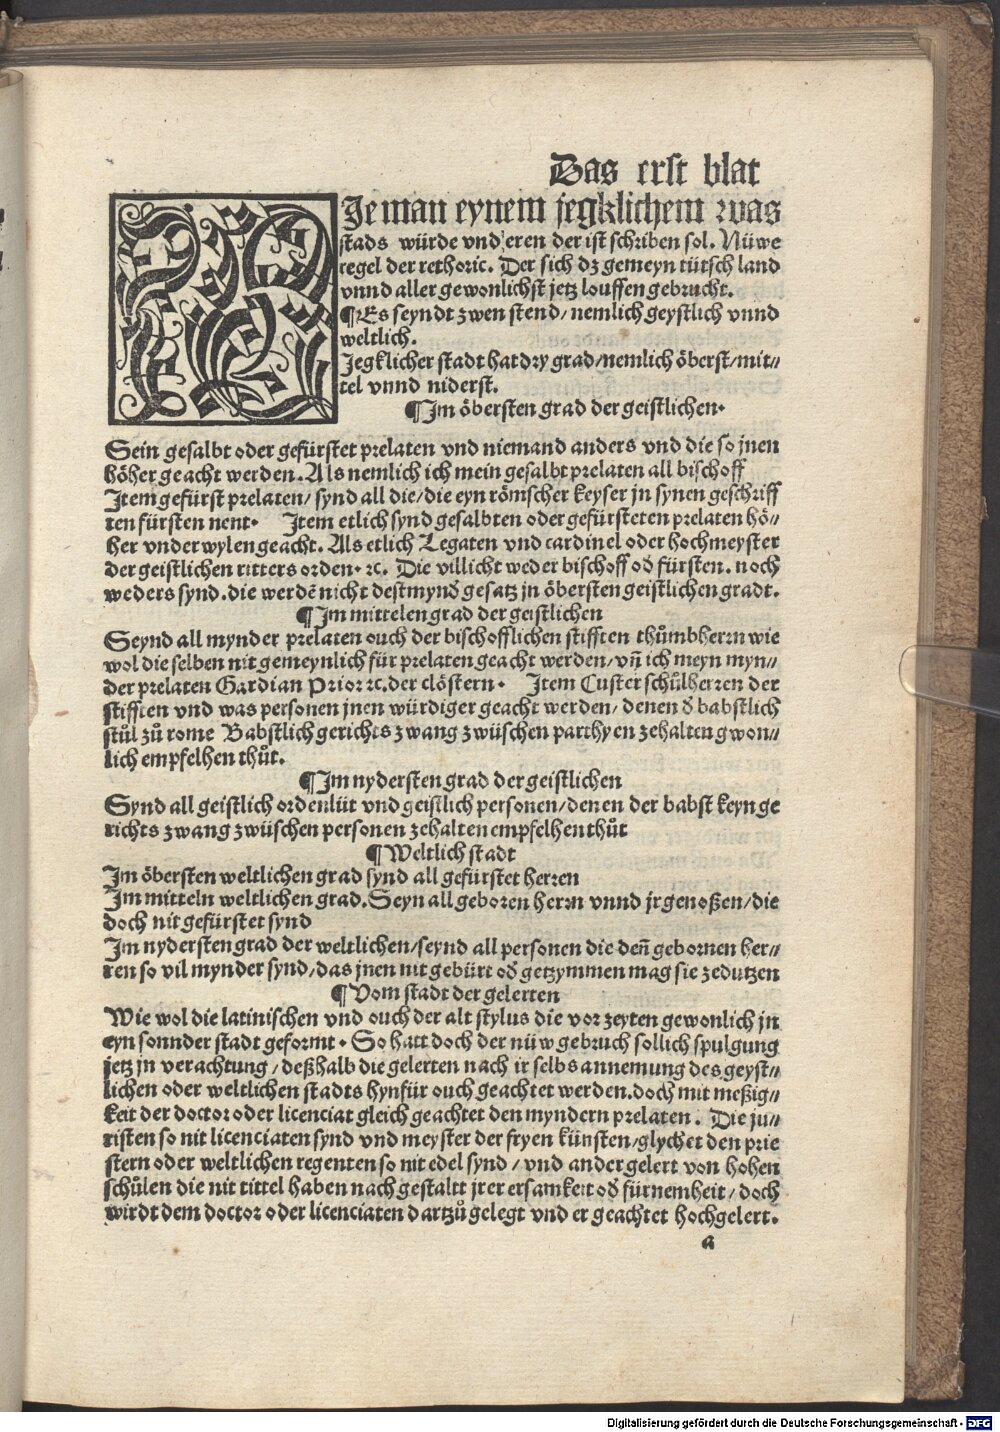 Das erst blat
WJe man eynem jegklichem was
stads würde vnd eren der ist schriben sol. Nüwe
regel der rethoric. Der sich dz gemeyn tütsch land
vnnd aller gewonlichst jetz louffen gebrucht.
¶Es seyndt zwen stend/ nemlich geystlich vnnd
weltlich.
Jegklicher stadt hat dry grad/nemlich öberst/mit⸗
tel vnnd niderst.
¶Jm öbersten grad der geistlichen.
Sein gesalbt oder gefürstet prelaten vnd niemand anders vnd die so jnen
höher geacht werden. Als nemlich ich mein gesalbt prelaten all bischoff
Jtem gefürst prelaten/ synd all die/die eyn römscher keyser jn synen geschriff
ten fürsten nent. Jtem etlich synd gesalbten oder gefürsteten prelaten hö⸗
her vnderwylen geacht. Als etlich Legaten vnd cardinel oder hochmeyster
der geistlichen ritters orden. ꝛc. Die villicht weder bischoff od̕ fürsten. noch
weders synd. die werdē nicht destmynd̕ gesatz jn öbersten geistlichen gradt.
¶Jm mittelen grad der geistlichen
Seynd all mynder prelaten ouch der bischofflichen stifften thůmbherrn wie
wol die selben nit gemeynlich für prelaten geacht werden/ vn̄ ich meyn myn⸗
der prelaten Gardian Prior ꝛc. der clöstern. Jtem Custer schůlherren der
stifften vnd was personen jnen würdiger geacht werden/ denen d̕ babstlich
stůl zů rome Babstlich gerichts zwang zwüschen parthyen zehalten gwon⸗
lich empfelhen thůt.
¶Jm nydersten grad der geistlichen
Synd all geistlich ordenlüt vnd geistlich personen/denen der babst keyn ge
richts zwang zwüschen personen zehalten empfelhen thůt
¶Weltlich stadt
Jm öbersten weltlichen grad synd all gefürstet herren
Jm mitteln weltlichen grad. Seyn all geboren herrn vnnd jr genoßen/die
doch nit gefürstet synd
Jm nydersten grad der weltlichen/seynd all personen die den̄ gebornen her⸗
ren so vil mynder synd/das jnen nit gebürt od̕ getzymmen mag sie zedutzen
¶Vom stadt der gelerten
Wie wol die latinischen vnd ouch der alt stylus die vor zeyten gewonlich jn
eyn sonnder stadt geformt. So hatt doch der nüw gebruch sollich spulgung
jetz jn verachtung/ deßhalb die gelerten nach ir selbs annemung des geyst⸗
lichen oder weltlichen stadts hynfür ouch geachtet werden. doch mit meßig⸗
keit der doctor oder licenciat gleich geachtet den myndern prelaten. Die ju⸗
risten so nit licenciaten synd vnd meyster der fryen künsten/glychet den prie
stern oder weltlichen regenten so nit edel synd/ vnd ander gelert von hohen
schůlen die nit tittel haben nach gestaltt jrer ersamkeit od̕ fürnemheit/ doch
wirdt dem doctor oder licenciaten dartzů gelegt vnd er geachtet hochgelert.
a
Digitalisierung gefördert durch die Deutsche Forschungsgemeinschaft - DFG